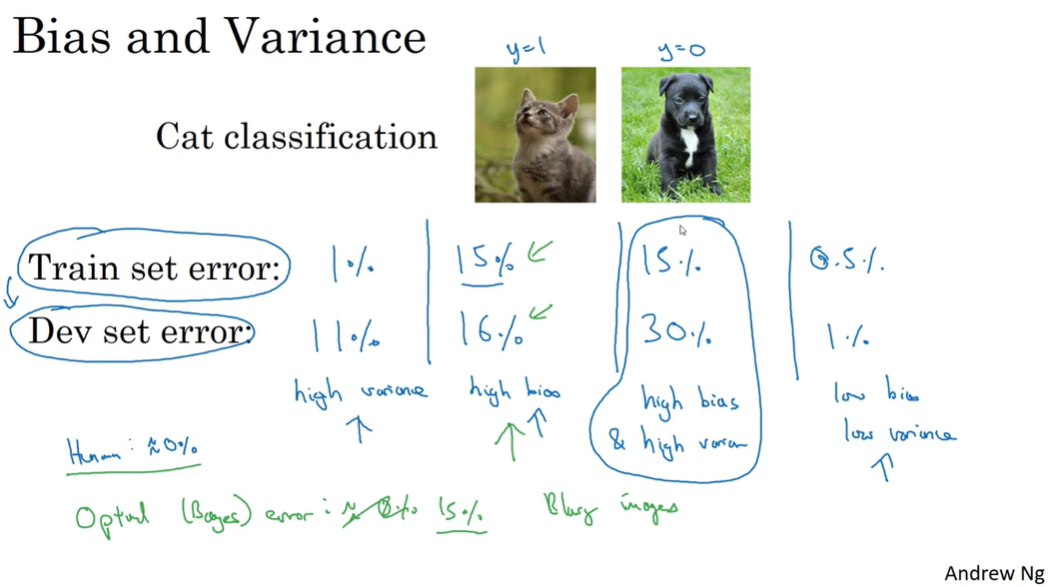 Bias and Variance
y=1 y=0
Cat classification
Train set error: 1% 15% 15% 0.5%
Dev set error: 11% 16% 30% 1%
high variance high bias high bias low bias
& high varian low variance
Human: ≈0%
Optimal (Bayes) error: ≈0% 15% Blurry images
Andrew Ng